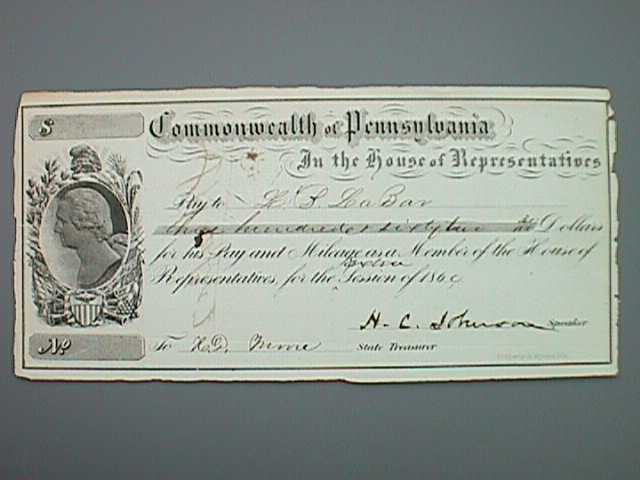 $ Commonwealth of Pennsylvania
In the House of Representatives
Pay to L. P. LaBar
three hundred & sixty two Dollars
for his Pay and Mileage as a Member of the House of
Extra
Representatives, for the Session of 1864
H. C. Johnson Speaker
No To H. D. Moore State Treasurer